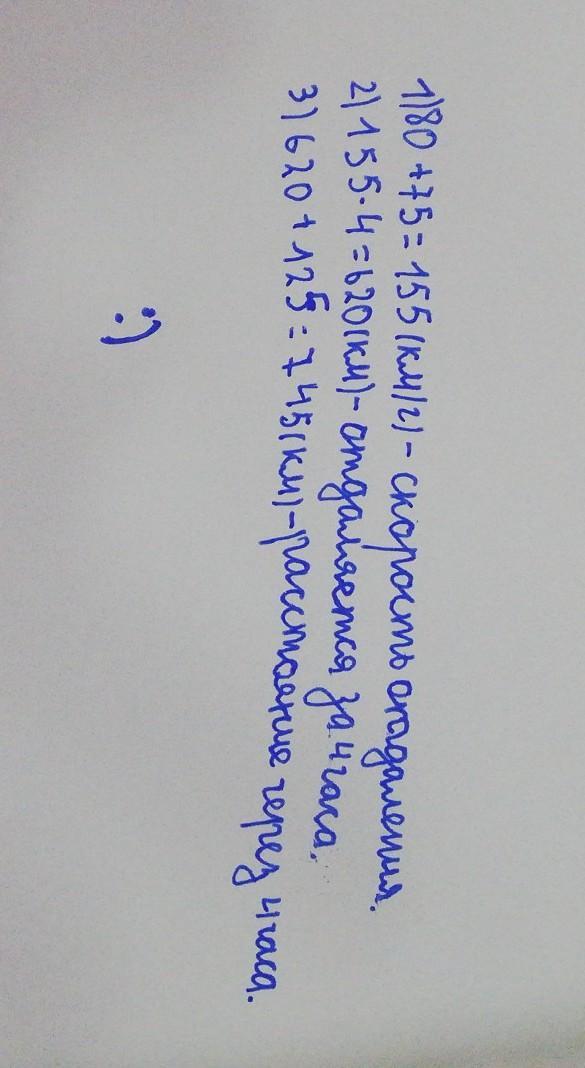 1) 80 + 75 = 155 (км/ч) - скорость отдаления.
2) 155 · 4 = 620 (км) - отдаляется за 4 часа.
3) 620 + 125 = 745 (км) - расстояние через 4 часа.
:)